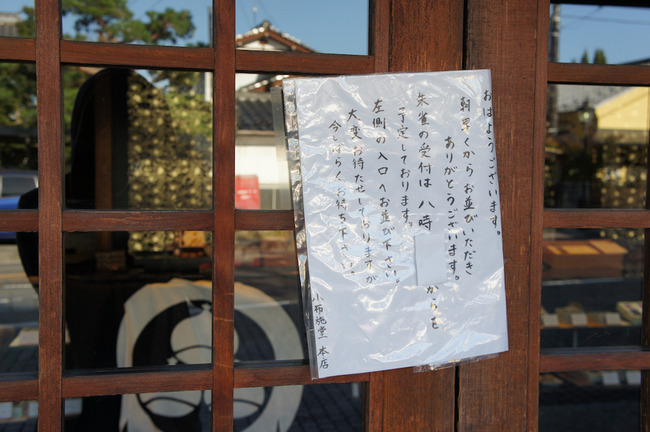 おはようございます。
朝早くからお並びいただき
ありがとうございます。
朱雀の受付は八時
からを
予定しております。
左側の入口へお並び下さい。
大変お待たせしておりますが
今しばらくお待ち下さい。
小布施堂 本店